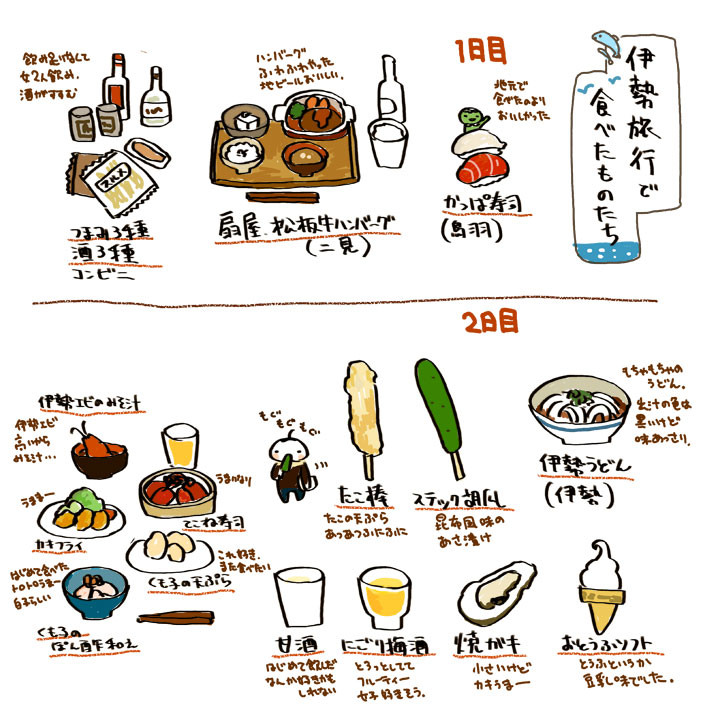 伊勢旅行で
食べたものたち
1日目
地元で
食べたのより
おいしかった
かっぱ寿司
(鳥羽)
ハンバーグ
ふわふわやった
地ビールおいしい。
扇屋 松板牛ハンバーグ
(二見)
女2人飲み。
酒がすすむ
スルメ
つまみ3種
酒3種
コンビニ
2日目
もちゃもちゃの
うどん。
出汁の色は
黒いけど
味あっさり。
伊勢うどん
(伊勢)
スティック胡瓜
昆布風味の
あさ漬け
たこ棒
たこの天ぷら
あつあつふにふに
もぐ
もぐ
もぐ
伊勢エビのみそ汁
伊勢エビ
高いから
みそ汁…
うまかなり
てこね寿司
うまー
カキフライ
これ好き。
また食べたい
くもろの天ぷら
はじめて食べた
トロトロうまー
白子らしい
くもろの
ぽん酢和え
おとうふソフト
とうふというか
豆乳味でした。
焼ガキ
小さいけど
カキうまー
にごり梅酒
とろっとしてて
フルーティー
女子好きそう。
甘酒
はじめて飲んだ
なんか好きかも
しれない